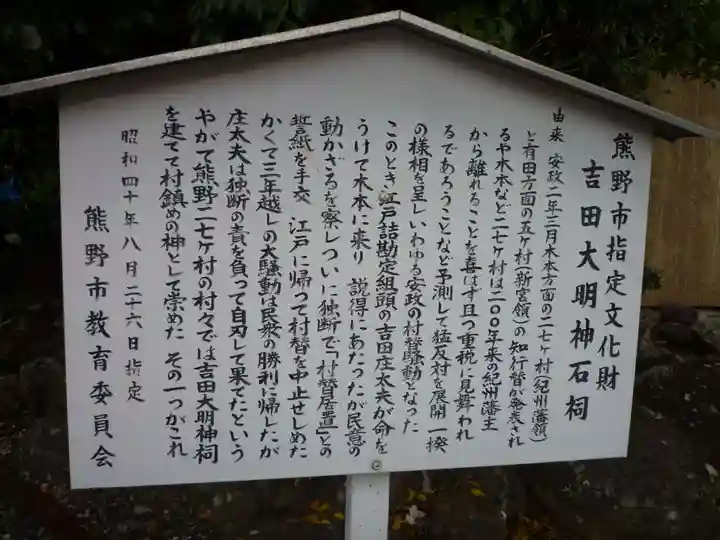 熊野市指定文化財
吉田大明神石祠
由来 安政二年三月木本方面の二七ヶ村(紀州藩領)
と有田方面の五ヶ村(新宮領)の知行替が発表され
るや木本など二七ヶ村は二〇〇年来の紀州藩主
から離れることを喜ばず且つ重税に見舞われ
るであろうことなど予測して猛反対を展開一揆
の様相を呈しいわゆる安政の村替騒動となった
このとき江戸詰勘定組頭の吉田庄太夫が命を
うけて木本に来り 説得にあたったが民意の
動かざるを察しついに独断で「村替居置」との
誓紙を手交 江戸に帰って村替を中止せしめた
かくて三年越しの大騒動は民衆の勝利に帰したが
庄太夫は独断の責を負って自刃して果てたという
やがて熊野二七ヶ村の村々では吉田大明神祠
を建てて村鎮めの神として崇めた その一つがこれ
昭和四十年八月二十六日指定
熊野市教育委員会